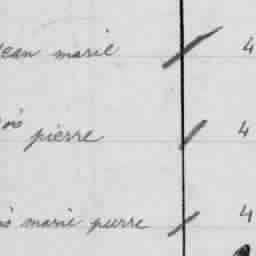 Jean marie 4
pierre 4
marie pierre 4